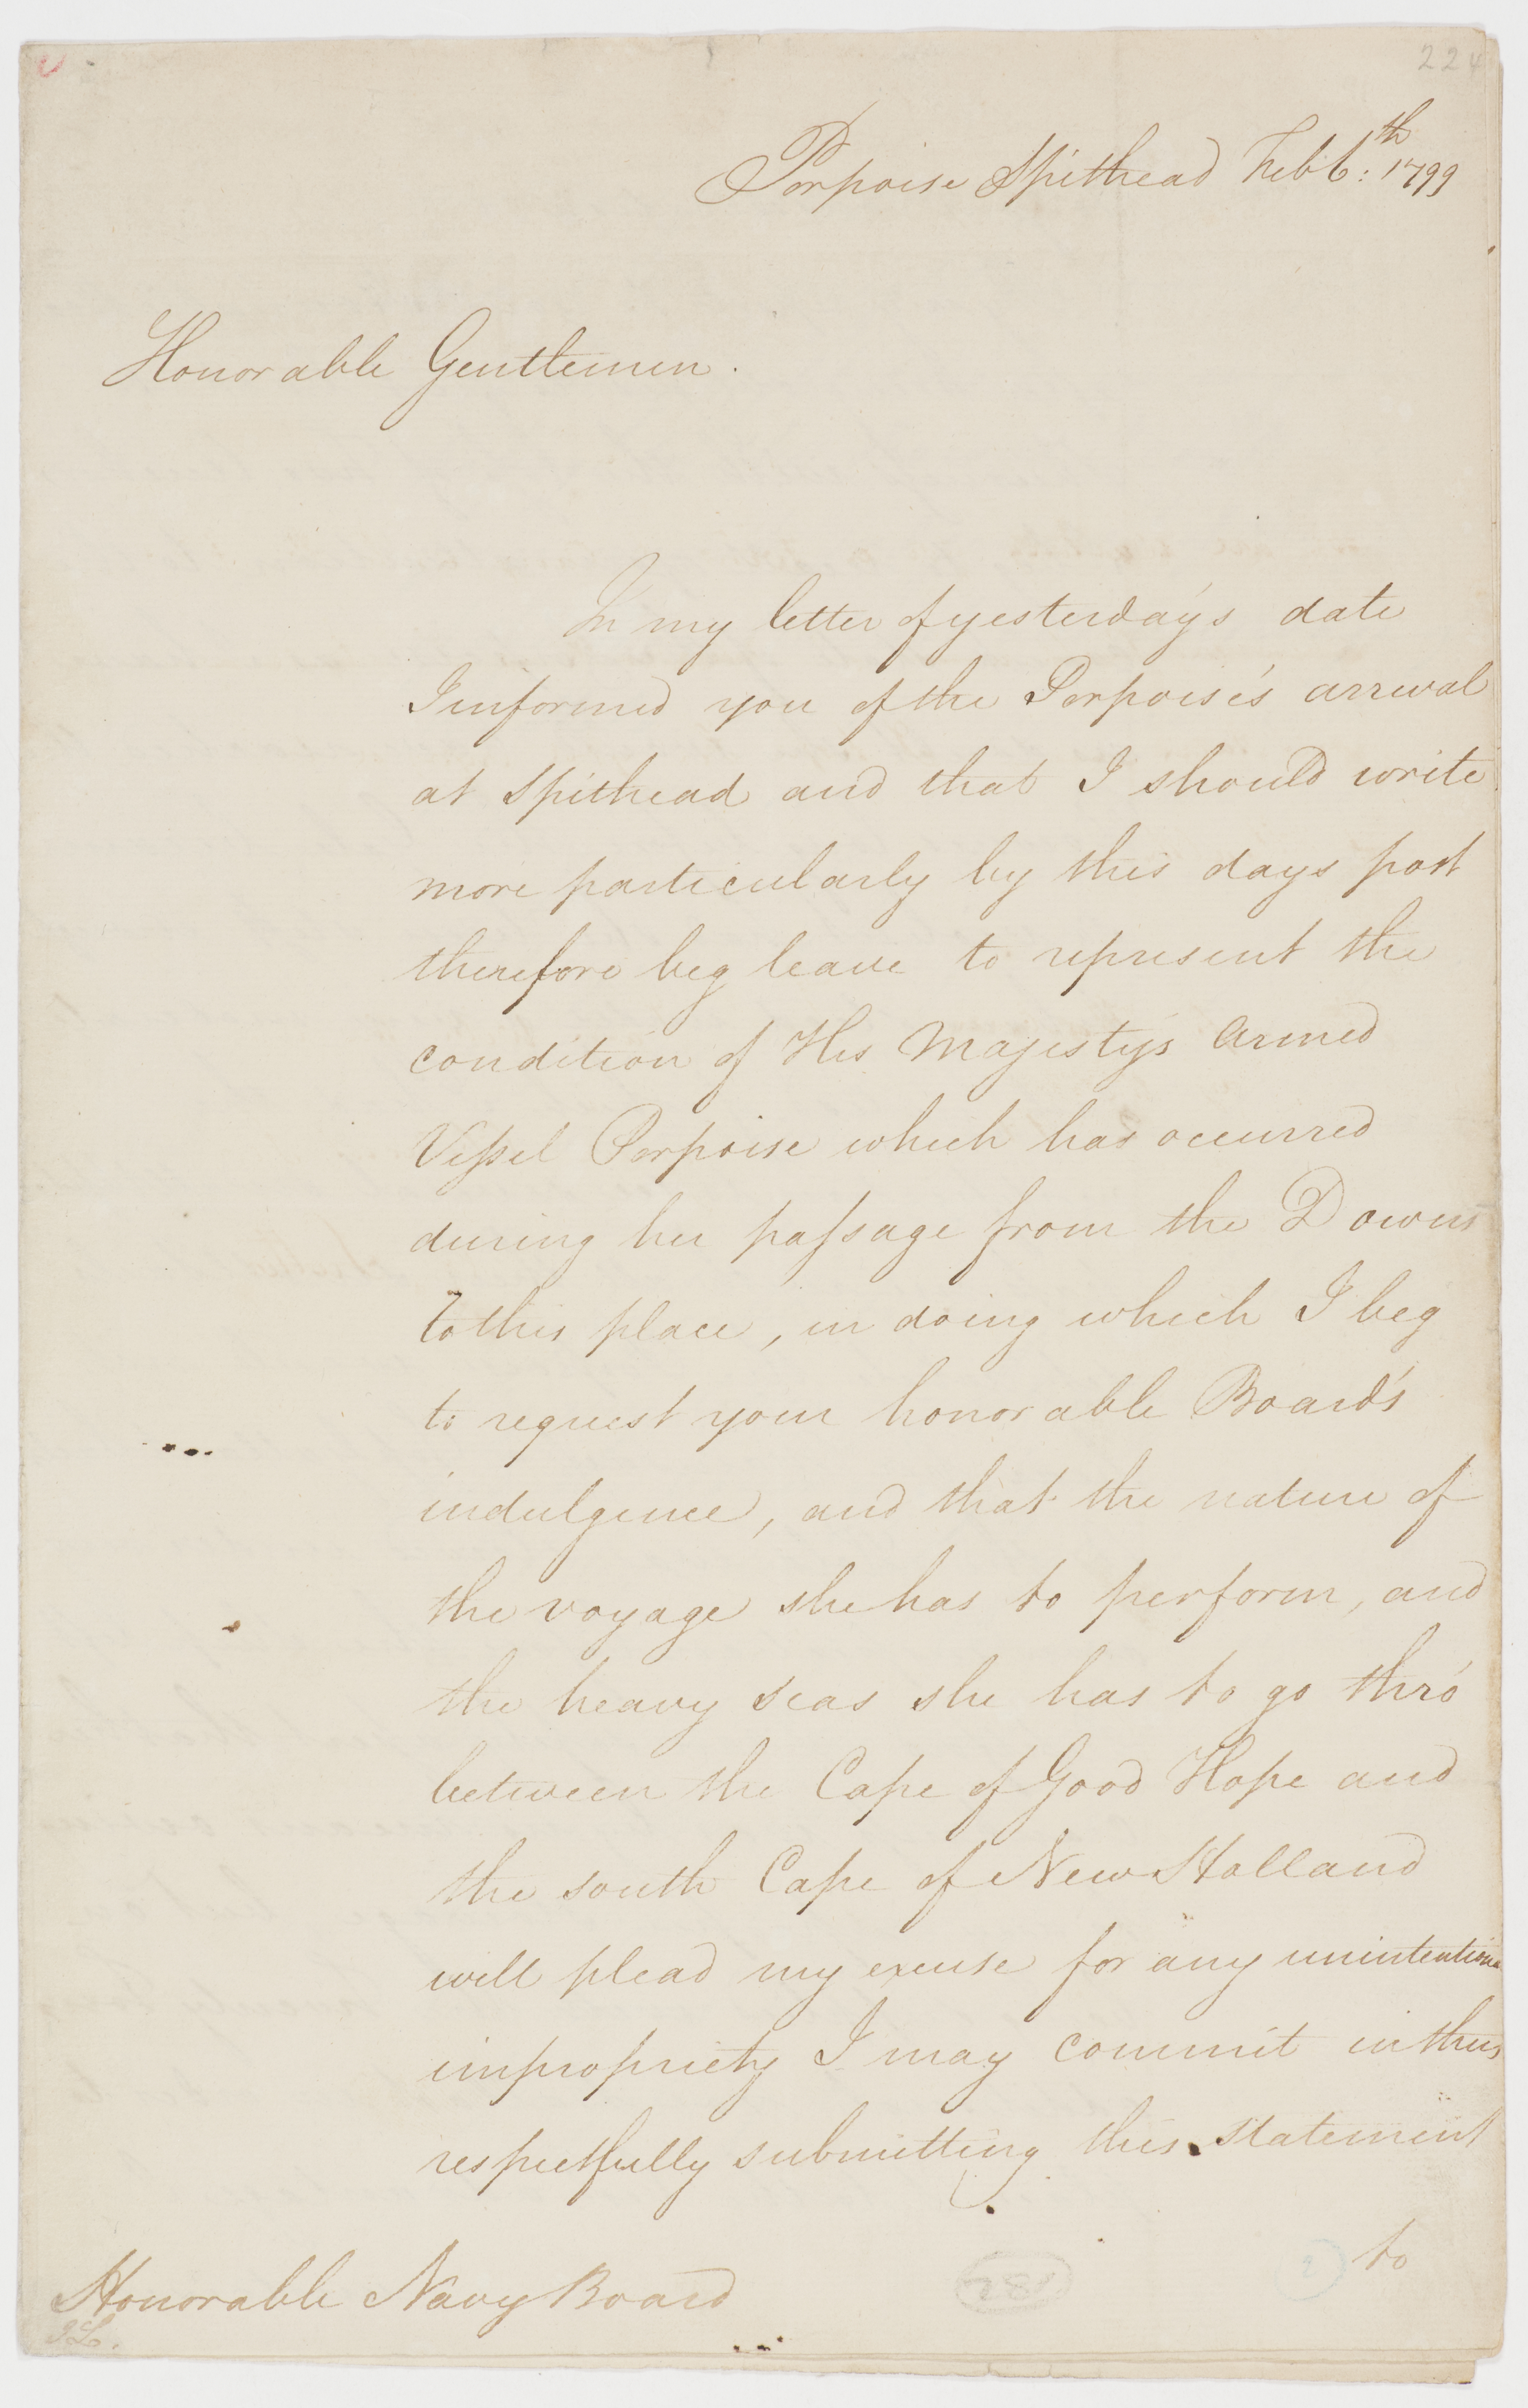 224
Porpoise Spithead Feb 6:th 1799
Honorable Gentlemen.
In my letter of yesterday's date
I informed you of the Porpoise's arrival
at Spithead and that I should write
more particularly by this days post
therefore beg leave to represent the
condition of His Majesty's Armed
Vessel Porpoise which has occurred
during her passage from the Downs
to this place, in doing which I beg
to request your honorable Board's
indulgence, and that the nature of
the voyage she has to perform, and
the heavy seas she has to go thro'
between the Cape of Good Hope and
the south Cape of New Holland
will plead my excuse for any unintentiona
impropriety I may commit in thus
respectfully submitting this statement
to
Honorable Navy Board